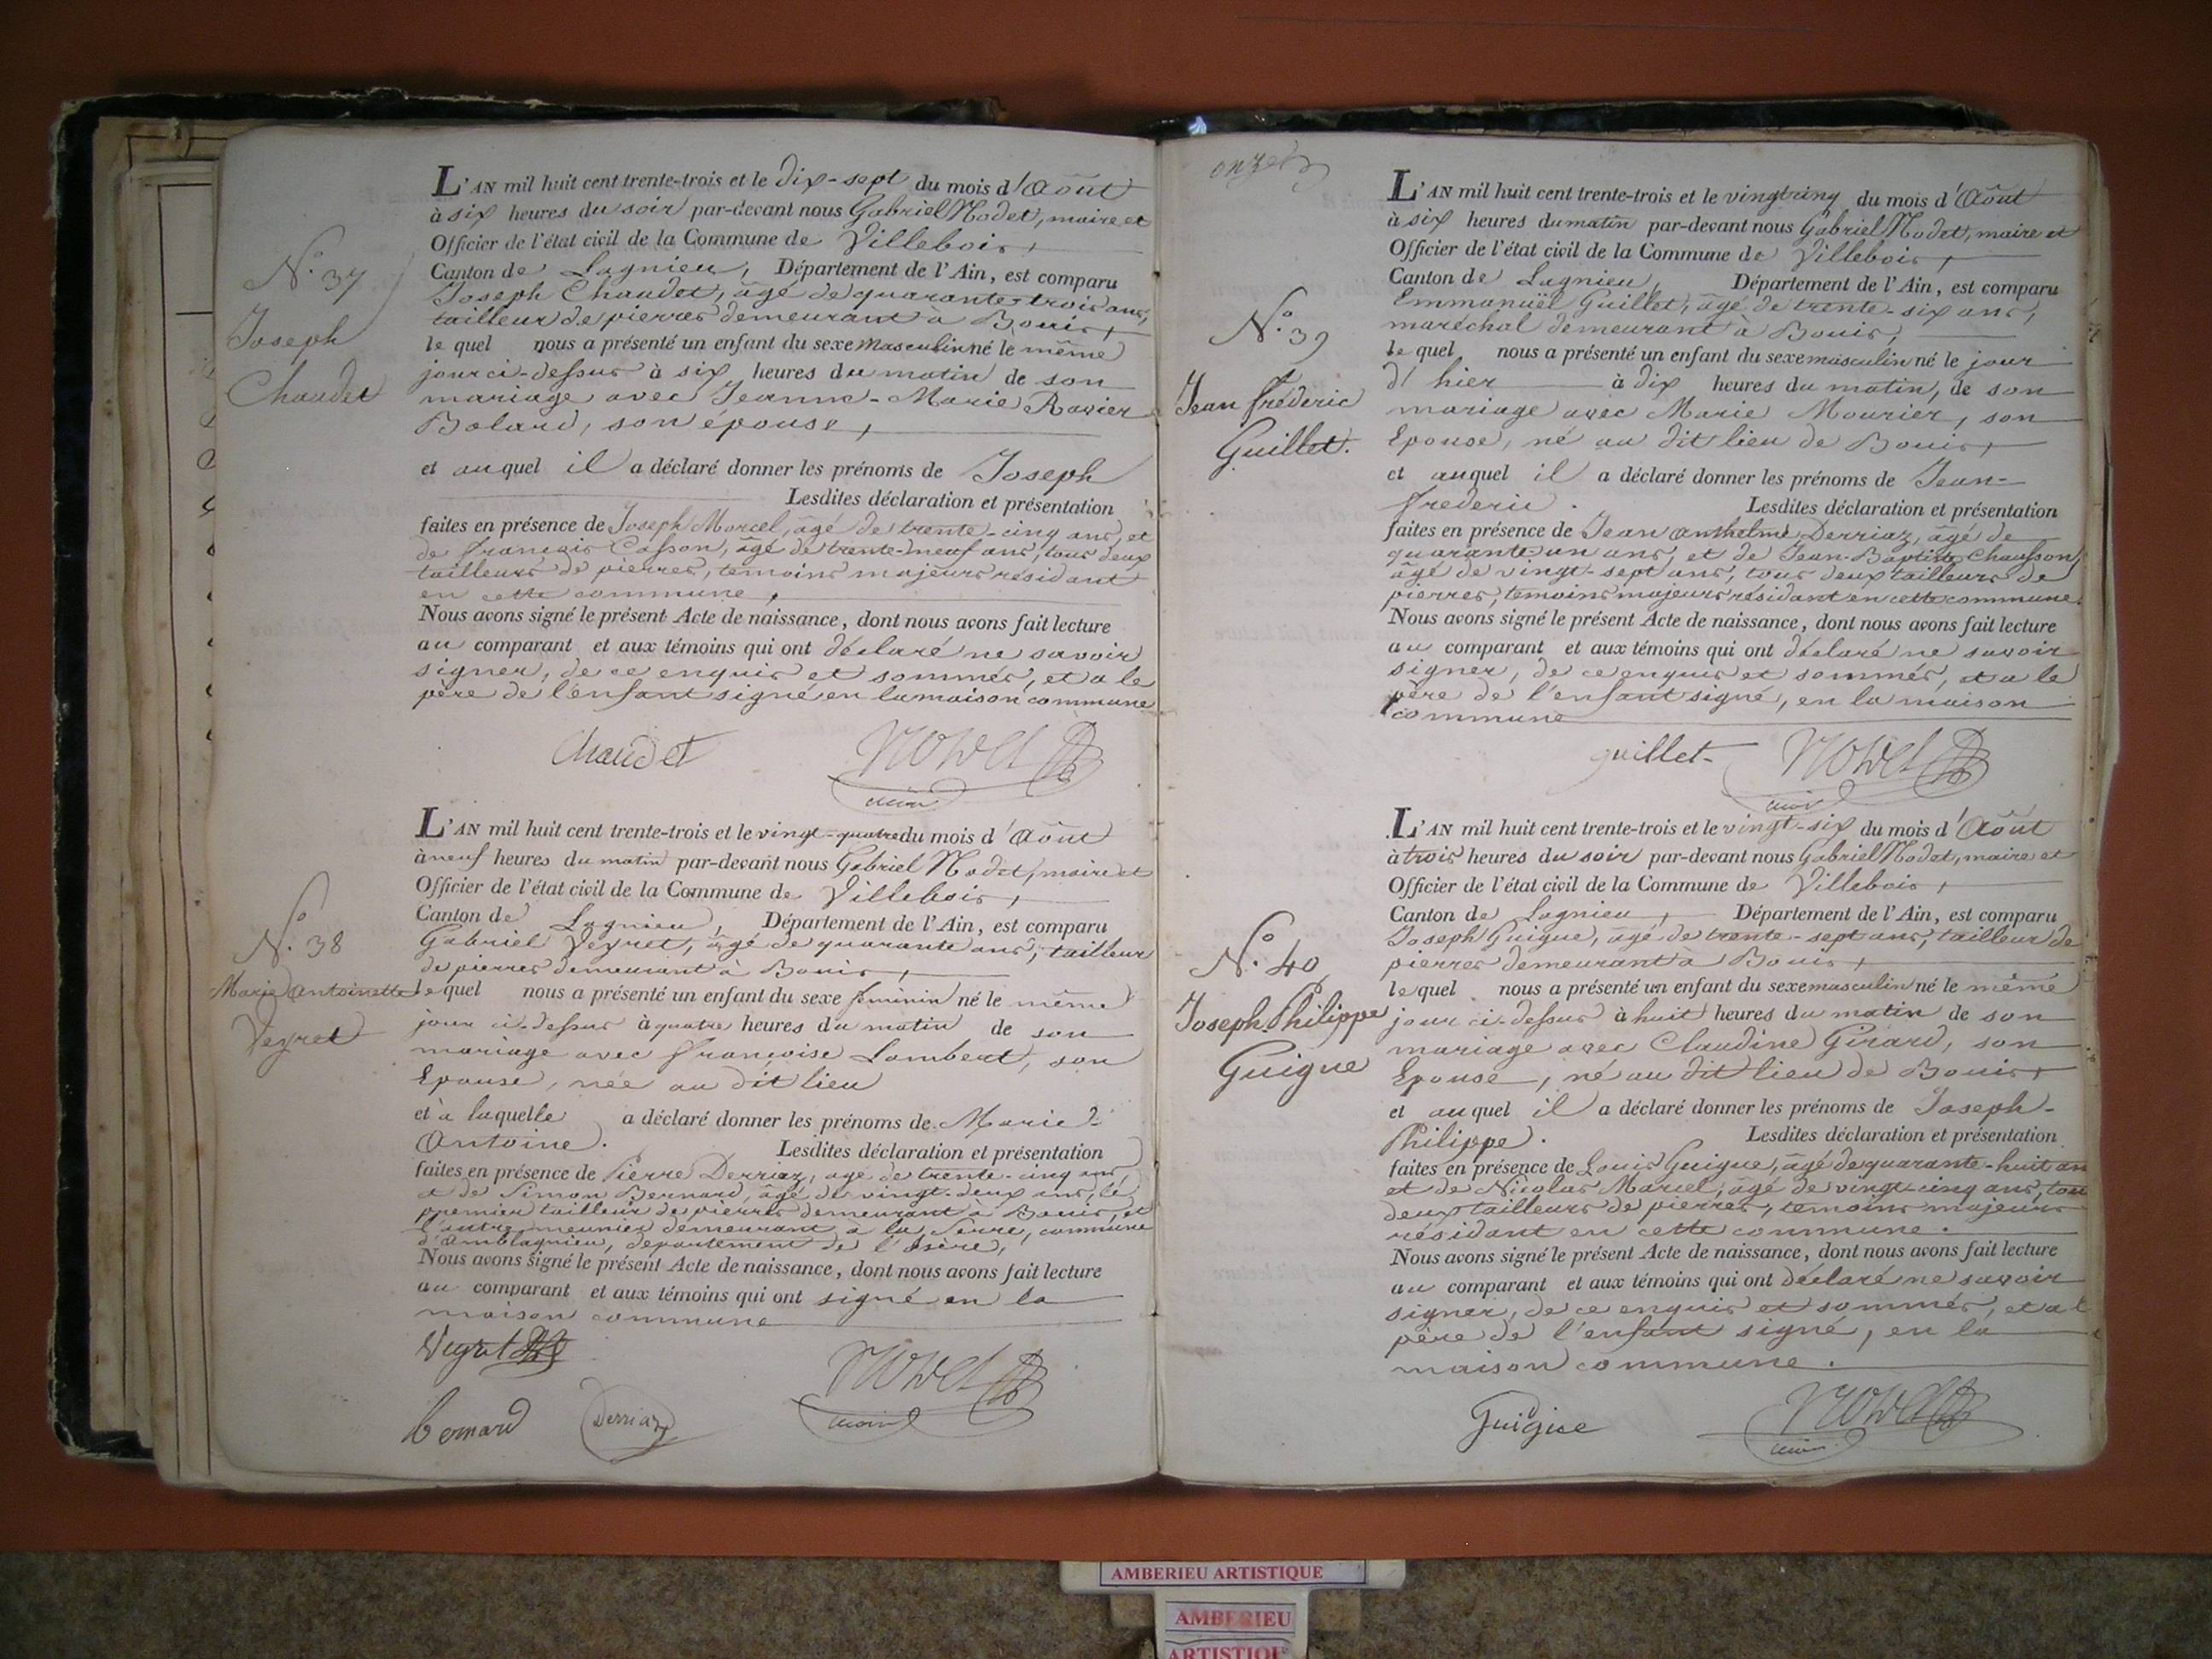 N.° 37
Joseph
Chaudet
L'AN mil huit cent trente-trois et le dix-sept du mois d'Août
à six heures du soir par-devant nous Gabriel Nodet, maire et
Officier de l'état civil de la Commune de Villebois,
Canton de Lagnieu, Département de l'Ain, est comparu
Joseph Chaudet, âgé de quarante-trois ans,
tailleur de pierres demeurant à Bouis,
le quel nous a présenté un enfant du sexe masculin né le même
jour ci-dessus à six heures du matin de son
mariage avec Jeanne-Marie Ravier
Bolard, son épouse,
et auquel il a déclaré donner les prénoms de Joseph
Lesdites déclaration et présentation
faites en présence de Joseph Marcel, âgé de trente-cinq ans, et
de François Casson, âgé de trente-neuf ans, tous deux
tailleurs de pierres, temoins majeurs résidant
en cette commune,
Nous avons signé le présent Acte de naissance, dont nous avons fait lecture
au comparant et aux témoins qui ont déclaré ne savoir
signer, de ce enquis et sommés, et a le
père de l'enfant signé en la maison commune
Chaudet Nodet
maire
N.° 38
Marie Antoinette
Veyret
L'AN mil huit cent trente-trois et le vingt-quatre du mois d'Août
à neuf heures du matin par-devant nous Gabriel Nodet, maire et
Officier de l'état civil de la Commune de Villebois,
Canton de Lagnieu, Département de l'Ain, est comparu
Gabriel Veyret, âgé de quarante ans, tailleur
de pierres demeurant à Bouis,
le quel nous a présenté un enfant du sexe féminin né le même
jour ci-dessus à quatre heures du matin de son
mariage avec Françoise Lambert, son
Epouse, née au dit lieu
et à laquelle a déclaré donner les prénoms de Marie-
Antoine. Lesdites déclaration et présentation
faites en présence de Pierre Derriaz, âgé de trente-cinq ans,
et de Simon Bernard, âgé de vingt-deux ans, le
premier tailleur de pierres demeurant à Bouis, et
l'autre meunier demeurant à la Serre, commune
d'Amblagnieu, departement de l'Isère,
Nous avons signé le présent Acte de naissance, dont nous avons fait lecture
au comparant et aux témoins qui ont signé en la
maison commune
Veyret
Nodet
Bernard Derriaz maire
onze
N.° 39
Jean Frédéric
Guillet.
L'AN mil huit cent trente-trois et le vingt cinq du mois d'Août
à six heures du matin par-devant nous Gabriel Nodet, maire et
Officier de l'état civil de la Commune de Villebois,
Canton de Lagnieu, Département de l'Ain, est comparu
Emmanuel Guillet, âgé de trente-six ans,
maréchal demeurant à Bouis,
le quel nous a présenté un enfant du sexe masculin né le jour
d'hier à dix heures du matin, de son
mariage avec Marie Mourier, son
Epouse, né au dit lieu de Bouis,
et auquel il a déclaré donner les prénoms de Jean-
Frederic. Lesdites déclaration et présentation
faites en présence de Jean Anthelme Derriaz, âgé de
quarante un ans, et de Jean-Baptiste Chausson,
âgé de vingt-sept ans, tous deux tailleurs de
pierres, temoins majeurs résidant en cette commune.
Nous avons signé le présent Acte de naissance, dont nous avons fait lecture
au comparant et aux témoins qui ont déclaré ne savoir
signer, de ce enquis et sommés, et a le
père de l'enfant signé, en la maison
commune
guillet Nodet
maire
N.° 40
Joseph Philippe
Guigue
L'AN mil huit cent trente-trois et le vingt-six du mois d'Août
à trois heures du soir par-devant nous Gabriel Nodet, maire et
Officier de l'état civil de la Commune de Villebois,
Canton de Lagnieu, Département de l'Ain, est comparu
Joseph Guigue, âgé de trente-sept ans, tailleur de
pierres demeurant à Bouis,
le quel nous a présenté un enfant du sexe masculin né le même
jour ci-dessus à huit heures du matin de son
mariage avec Claudine Girard, son
Epouse, né au dit lieu de Bouis,
et auquel il a déclaré donner les prénoms de Joseph-
Philippe. Lesdites déclaration et présentation
faites en présence de Louis Guigue, âgé de quarante-huit an
et de Nicolas Marcel, âgé de vingt-cinq ans, tou
deux tailleurs de pierres, temoins majeurs
résidant en cette commune.
Nous avons signé le présent Acte de naissance, dont nous avons fait lecture
au comparant et aux témoins qui ont déclaré ne savoir
signer, de ce enquis et sommés, et a l
père de l'enfant signé, en la
maison commune.
Guigue Nodet
maire
AMBERIEU ARTISTIQUE
AMBERIEU
ARTISTIQU